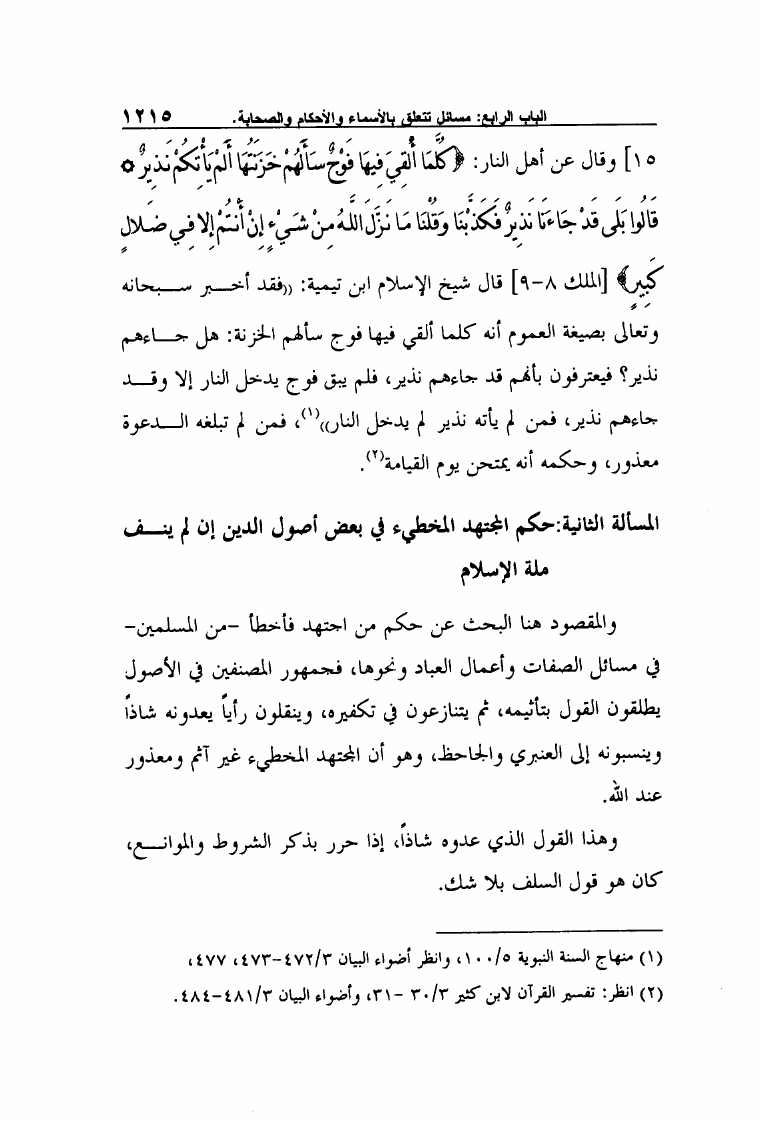 الباب الرابع: مسائل تتعلق بالأسماء والأحكام والصحابة. ١٢١٥
١٥] وقال عن أهل النار: ﴿كُلَّمَا أُلْقِيَ فِيهَا فَوْجٌ سَأَلَهُمْ خَزَنَتُهَا أَلَمْ يَأْتِكُمْ نَذِيرٌ ۞
قَالُوا بَلَى قَدْ جَاءَنَا نَذِيرٌ فَكَذَّبْنَا وَقُلْنَا مَا نَزَّلَ اللَّهُ مِنْ شَيْءٍ إِنْ أَنْتُمْ إِلا فِي ضَلالٍ
كَبِيرٍ﴾ [الملك ٨-٩] قال شيخ الإسلام ابن تيمية: ((فقد أخبر سبحانه
وتعالى بصيغة العموم أنه كلما ألقي فيها فوج سألهم الخزنة: هل جاءهم
نذير؟ فيعترفون بأنهم قد جاءهم نذير، فلم يبق فوج يدخل النار إلا وقد
جاءهم نذير، فمن لم يأته نذير لم يدخل النار))(١)، فمن لم تبلغه الدعوة
معذور، وحكمه أنه يمتحن يوم القيامة(٢).
المسألة الثانية:حكم المجتهد المخطيء في بعض أصول الدين إن لم ينف
ملة الإسلام
والمقصود هنا البحث عن حكم من اجتهد فأخطأ -من المسلمين-
في مسائل الصفات وأعمال العباد ونحوها، فجمهور المصنفين في الأصول
يطلقون القول بتأثيمه، ثم يتنازعون في تكفيره، وينقلون رأياً يعدونه شاذاً
وينسبونه إلى العنبري والجاحظ، وهو أن المجتهد المخطيء غير آثم ومعذور
عند الله.
وهذا القول الذي عدوه شاذاً، إذا حرر بذكر الشروط والموانع،
كان هو قول السلف بلا شك.
(١) منهاج السنة النبوية ١٠٠/٥، وانظر أضواء البيان ٤٧٢/٣-٤٧٣، ٤٧٧،
(٢) انظر: تفسير القرآن لابن كثير ٣٠/٣ -٣١، وأضواء البيان ٤٨١/٣-٤٨٤.